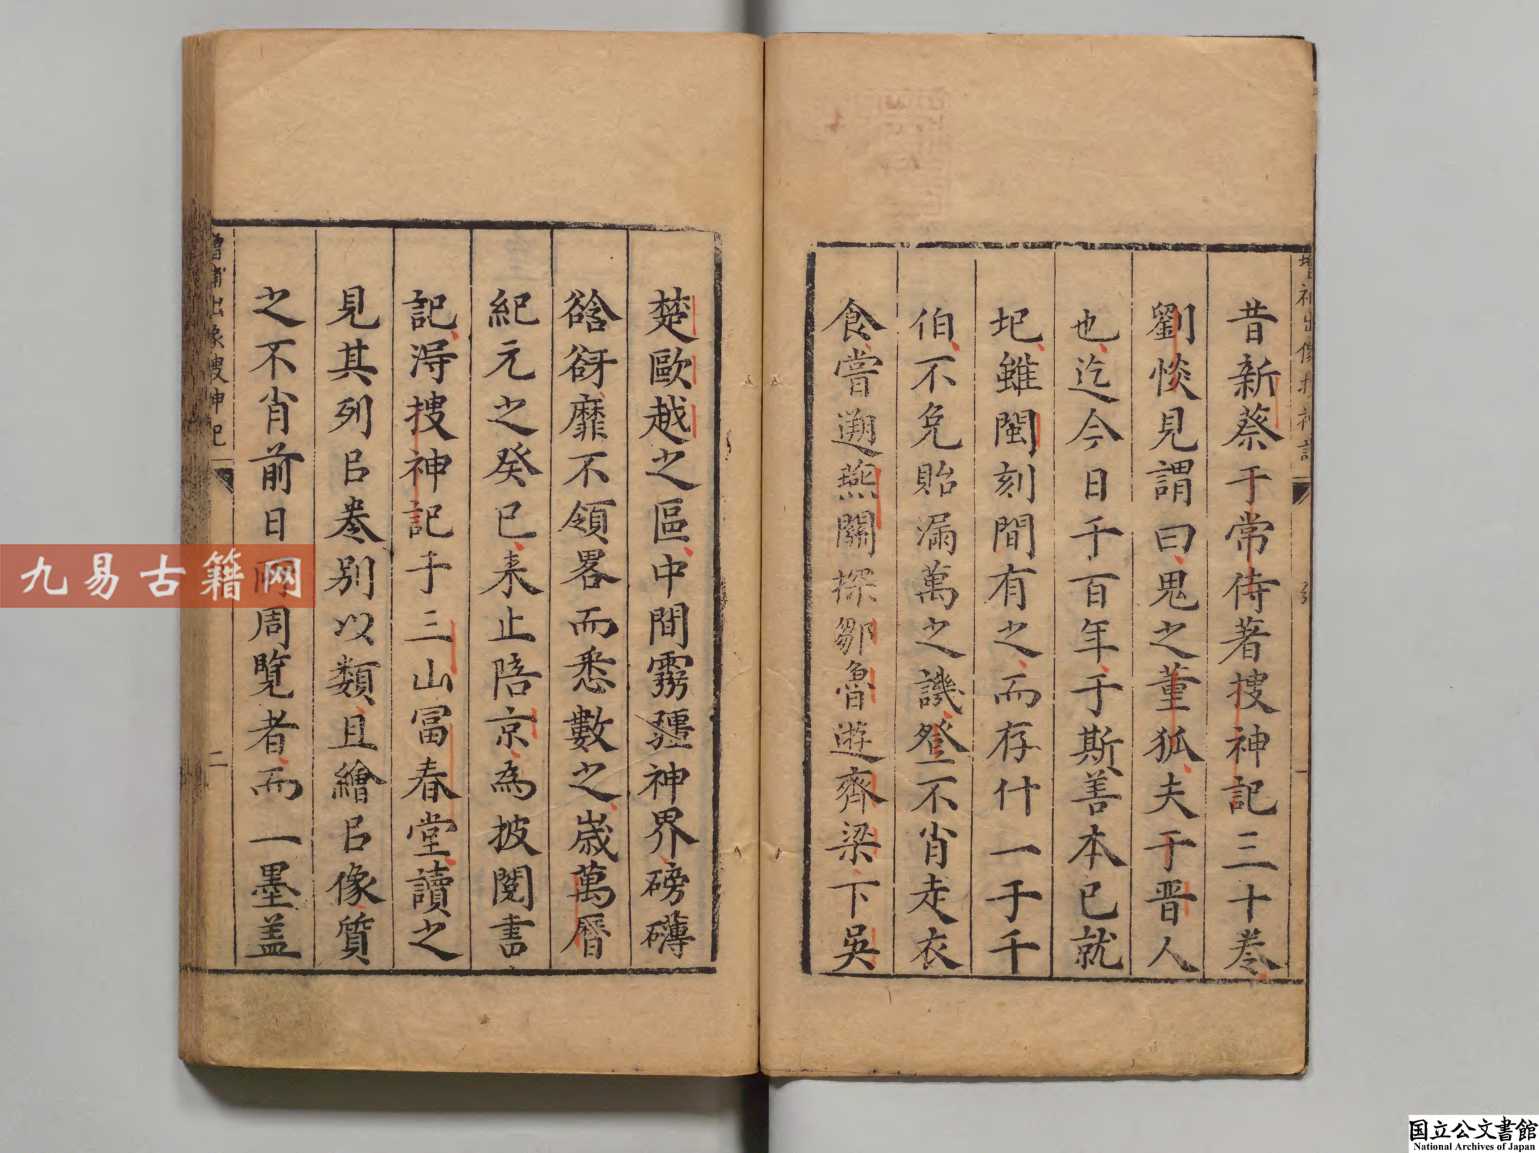 昔新蔡于常侍著搜神記三十卷
劉惔見謂曰鬼之董狐夫于晋人
也迄今日千百年于斯善本已就
圯雖閩刻間有之而存什一于千
伯不免貽漏萬之譏登不肖走衣
食嘗遡燕關探鄒魯遊齊梁下吳
楚歐越之區中間霧疆神界磅礴
谽谺靡不領畧而悉數之歲萬曆
紀元之癸巳来止陪京為披閱書
記淂搜神記于三山富春堂讀之
見其列㠯卷別以類且繪㠯像質
之不肖前日所周覽者而一墨盖
增補出像搜神記
二
增補出像搜神記
一
九易古籍网
国立公文書館
National Archives of Japan